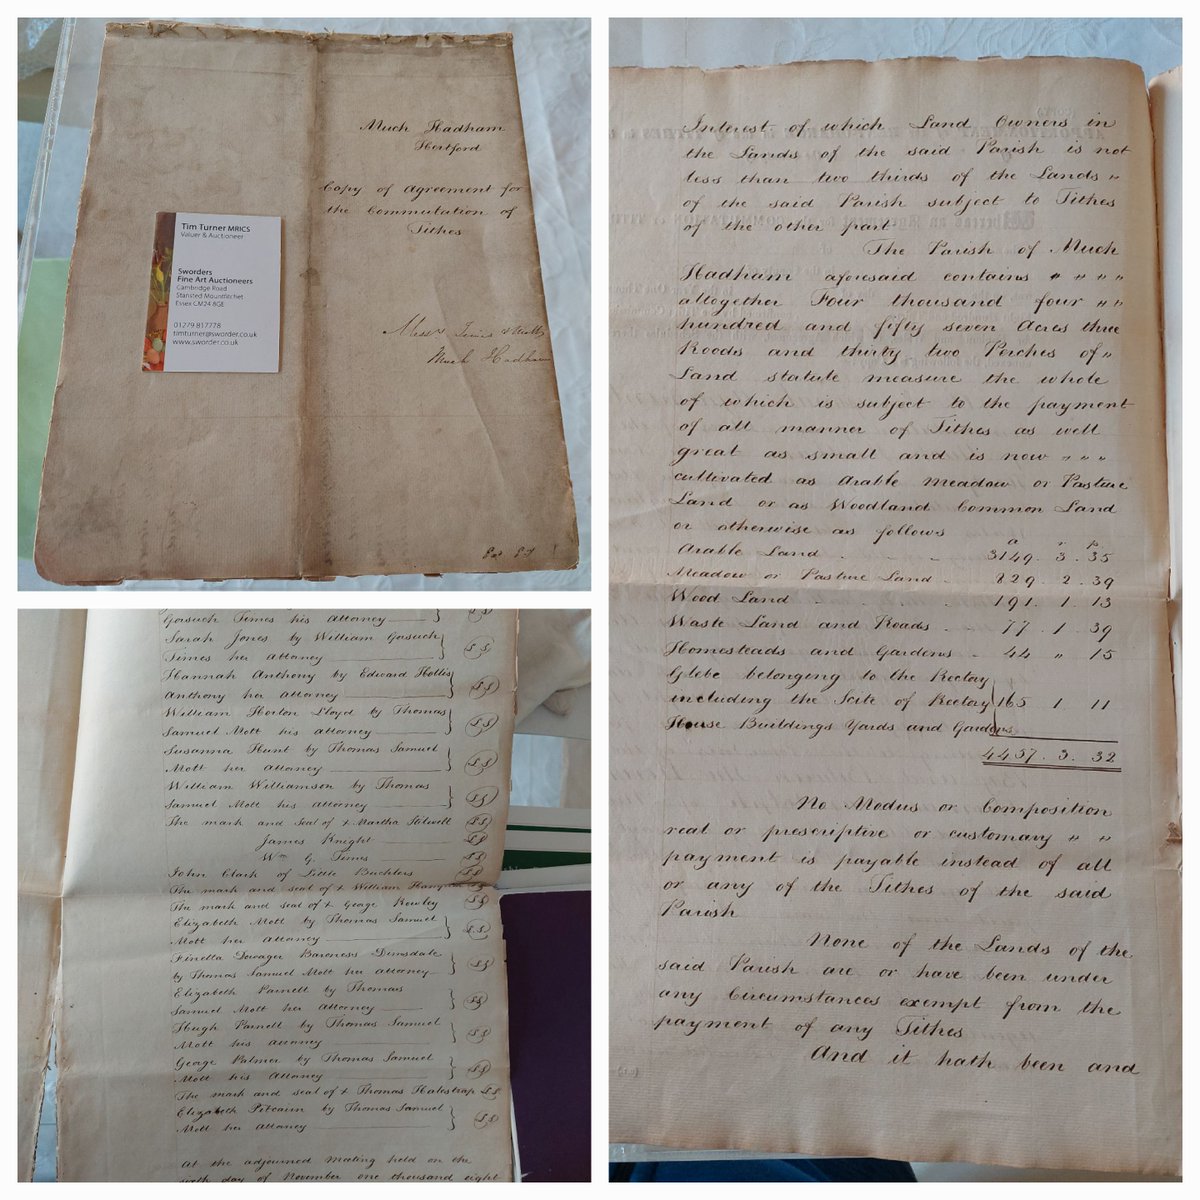 Much Hadham
Hertford
Copy of Agreement for
the Commutation of
Tithes
Much Hadham
Tim Turner MRICS
Valuer & Auctioneer
Sworders
Fine Art Auctioneers
Cambridge Road
Stansted Mountfitchet
Essex CM24 8GE
01279 817778
timturner@sworder.co.uk
www.sworder.co.uk
Interest of which Land Owners in
the Lands of the said Parish is not
less than two thirds of the Lands "
of the said Parish subject to Tithes
of the other part
The Parish of Much
Hadham aforesaid contains " " " "
altogether Four thousand four " "
hundred and fifty seven Acres three
Roods and thirty two Perches of "
Land statute measure the whole
of which is subject to the payment
of all manner of Tithes as well
great as small and is now " " "
cultivated as Arable Meadow or Pasture
Land or as Woodland Common Land
or otherwise as follows
a r p
Arable Land 3149. 3. 35
Meadow or Pasture Land 829. 2. 39
Wood Land 191. 1. 13
Waste Land and Roads 77. 1. 39
Homesteads and Gardens 44 " 15
Glebe belonging to the Rectory
including the Scite of Rectory 165 1 11
House Buildings Yards and Gardens
4457. 3. 32
No Modus or Composition
real or prescriptive or customary " "
payment is payable instead of all
or any of the Tithes of the said
Parish
None of the Lands of the
said Parish are or have been under
any Circumstances exempt from the
payment of any Tithes
And it hath been and
Gosuch Times his attorney
Sarah Jones by William Gosuch
Times her Attorney
Hannah Anthony by Edward Hollis
Anthony her attorney
William Horton Lloyd by Thomas
Samuel Mott his attorney
Susanna Hunt by Thomas Samuel
Mott her attorney
William Williamson by Thomas
Samuel Mott his attorney
The mark and Seal of x Martha Stilwell
James Knight
Wm G. Times
John Clark of Little
The mark and seal of x William
The mark and seal of x George Rowley
Elizabeth Mott by Thomas Samuel
Mott her attorney
Finella Dowager Baroness Dimsdale
by Thomas Samuel Mott her attorney
Elizabeth Parnell by Thomas
Samuel Mott her Attorney
Hugh Parnell by Thomas Samuel
Mott his attorney
George Palmer by Thomas Samuel
Mott his Attorney
The mark and seal of x Thomas Halestrap
Elizabeth Pitcairn by Thomas Samuel
Mott her Attorney
At the adjourned Meeting held on the
day of November one thousand eight